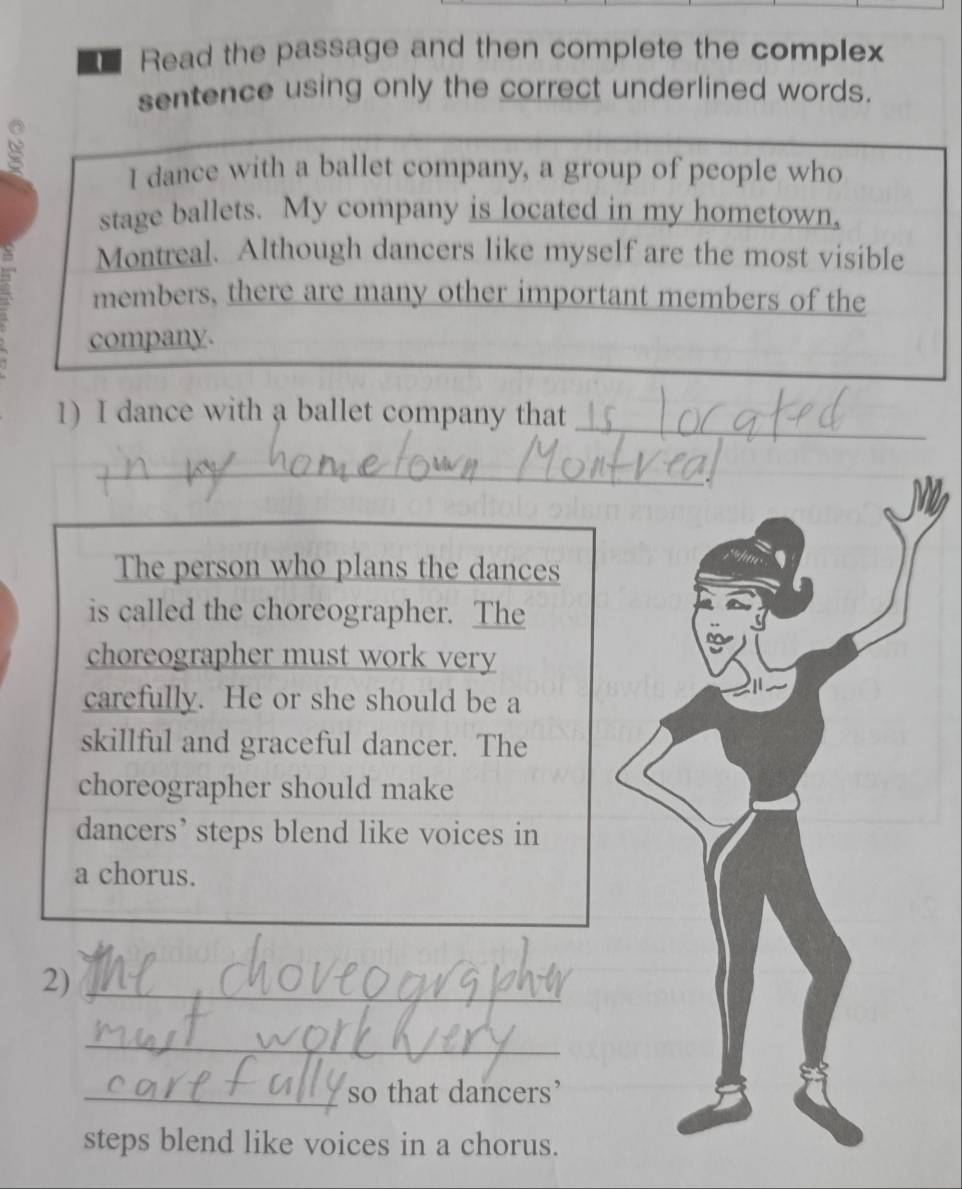 1 Read the passage and then complete the complex
sentence using only the correct underlined words.
© 200
I dance with a ballet company, a group of people who
stage ballets. My company is located in my hometown,
Montreal. Although dancers like myself are the most visible
members, there are many other important members of the
company.
1) I dance with a ballet company that is located
in my hometown Montreal.
The person who plans the dances
is called the choreographer. The
choreographer must work very
carefully. He or she should be a
skillful and graceful dancer. The
choreographer should make
dancers' steps blend like voices in
a chorus.
2) The choreographer
must work very
carefully so that dancers'
steps blend like voices in a chorus.